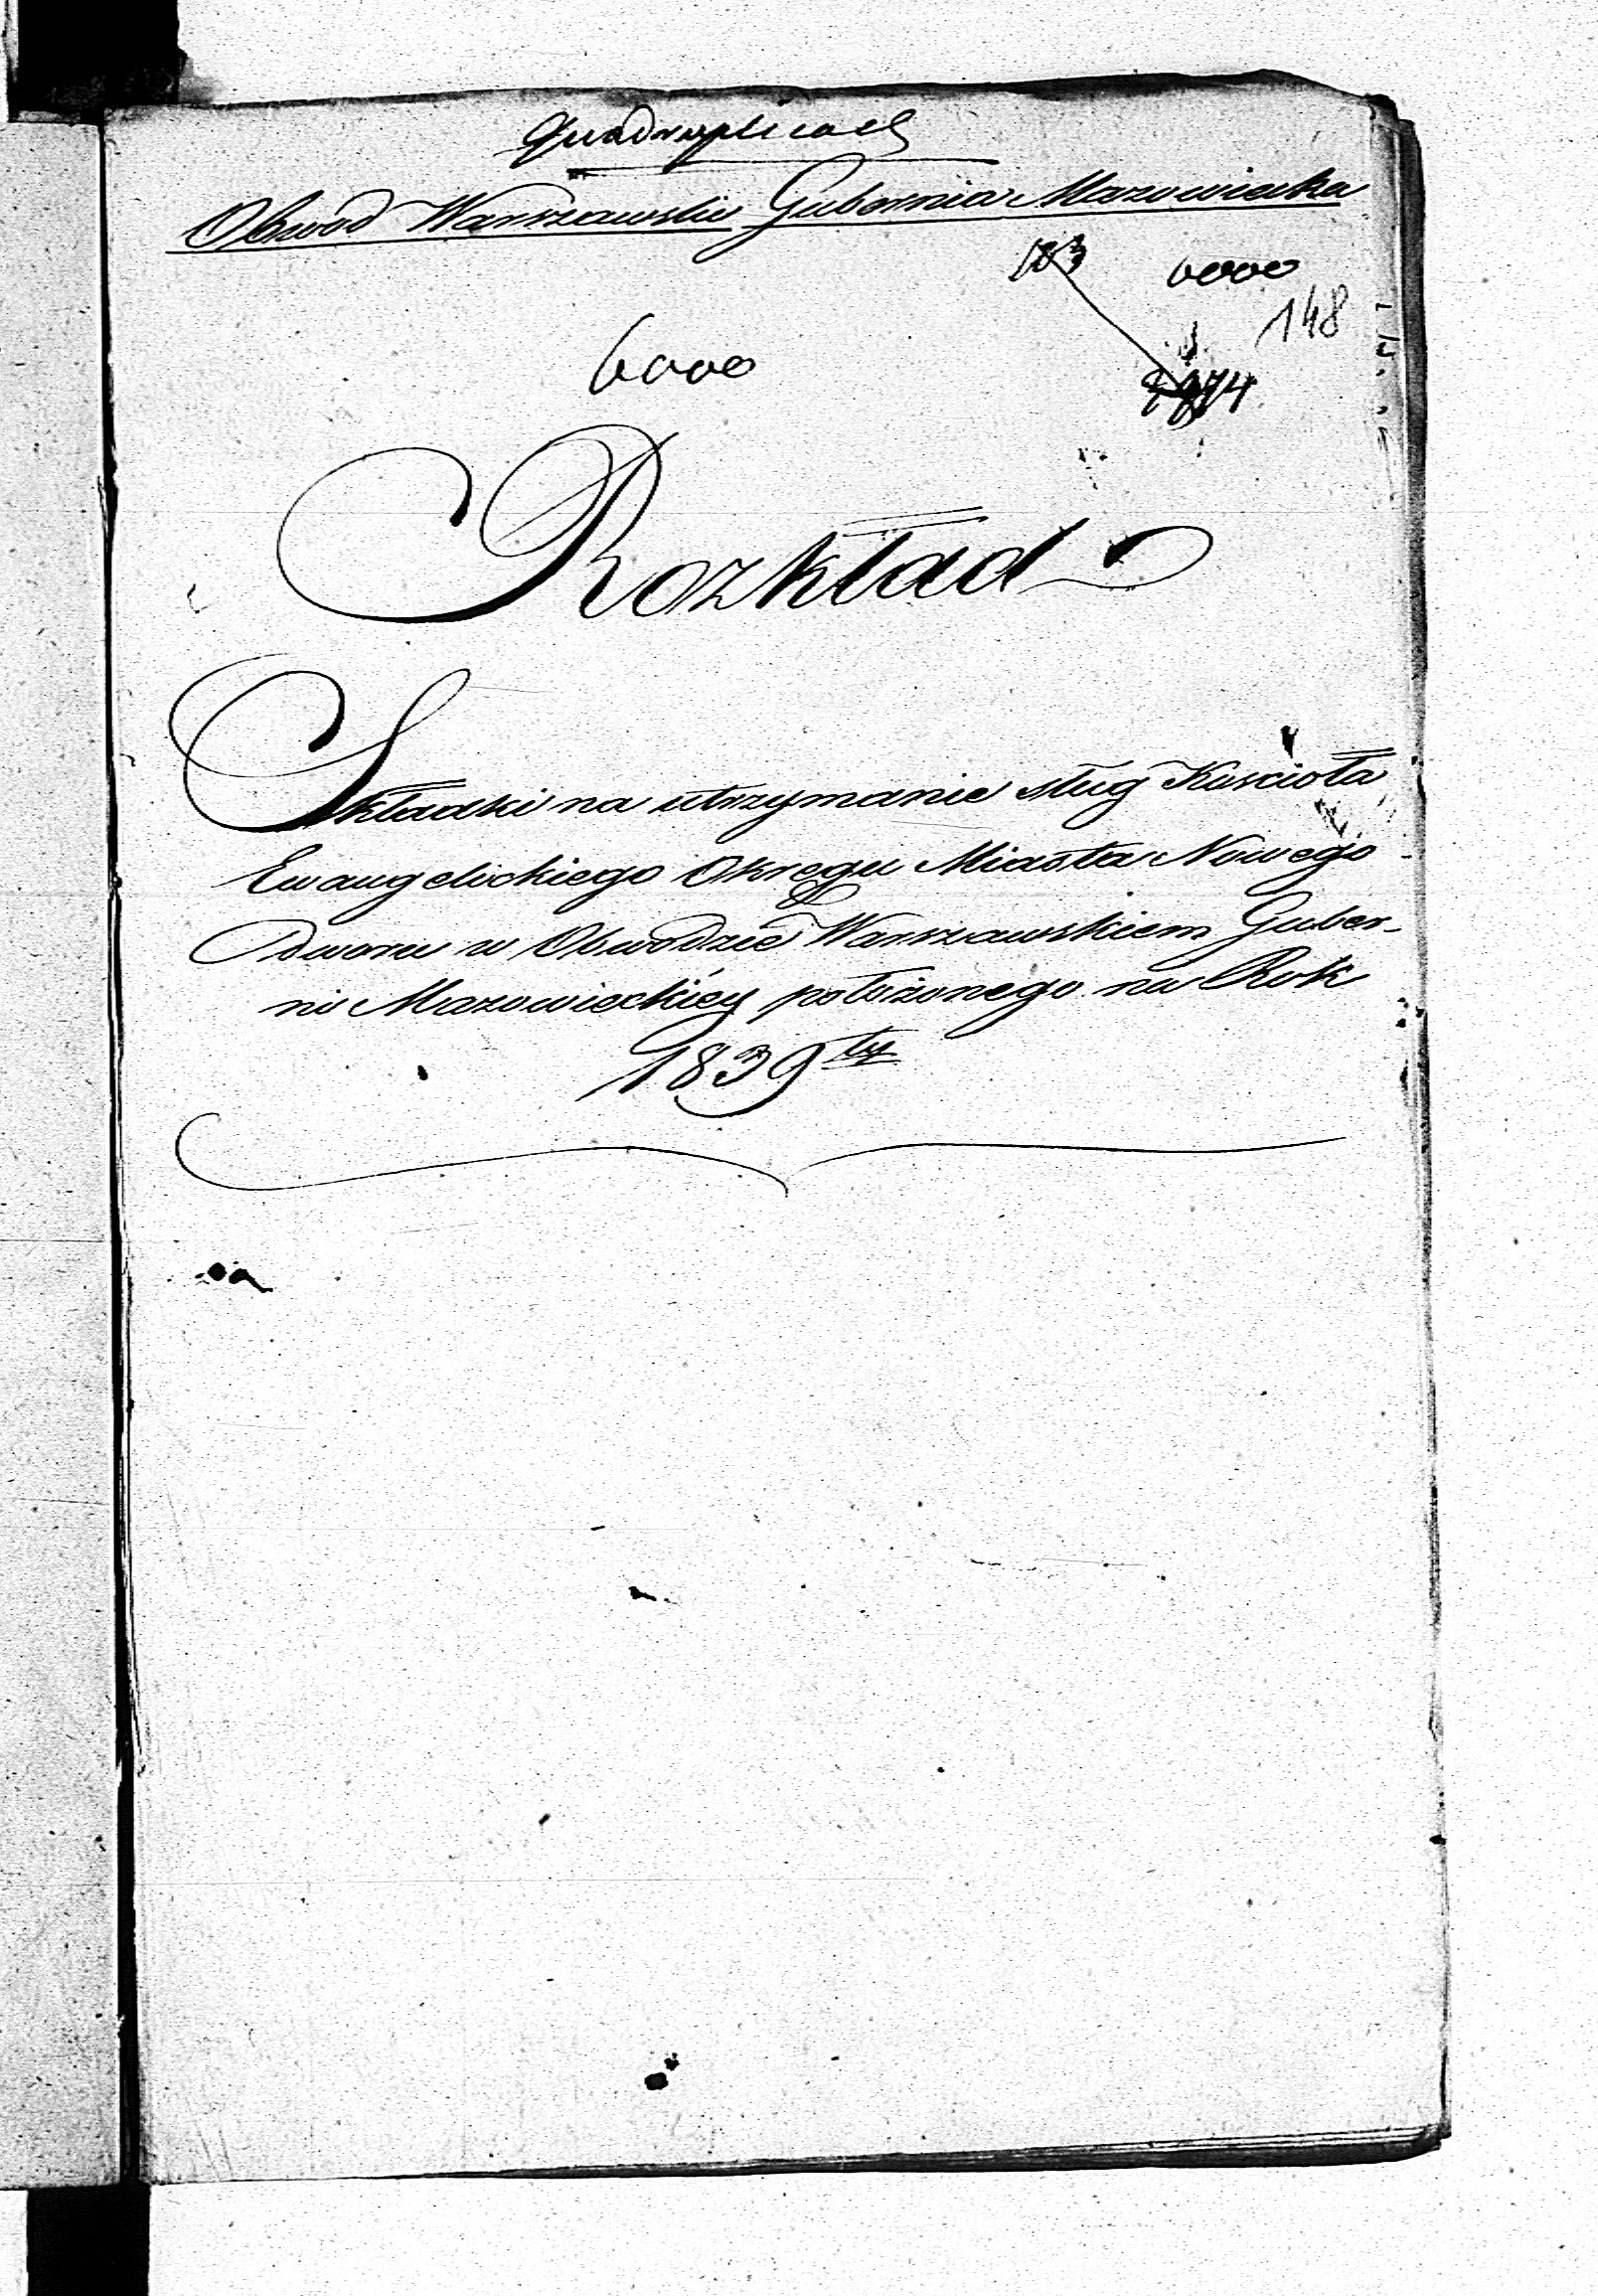 Quadruplicat
Obwód Warszawski Gubernia Mazowiecka
6000
148
6000
Rozkład
Składki na utrzymanie sług Kościoła
Ewangelickiego Okręgu Miasta Nowego
Dworu w Obwodzie Warszawskiem Guber-
nii Mazowieckiéy położonego na Rok
1839ty